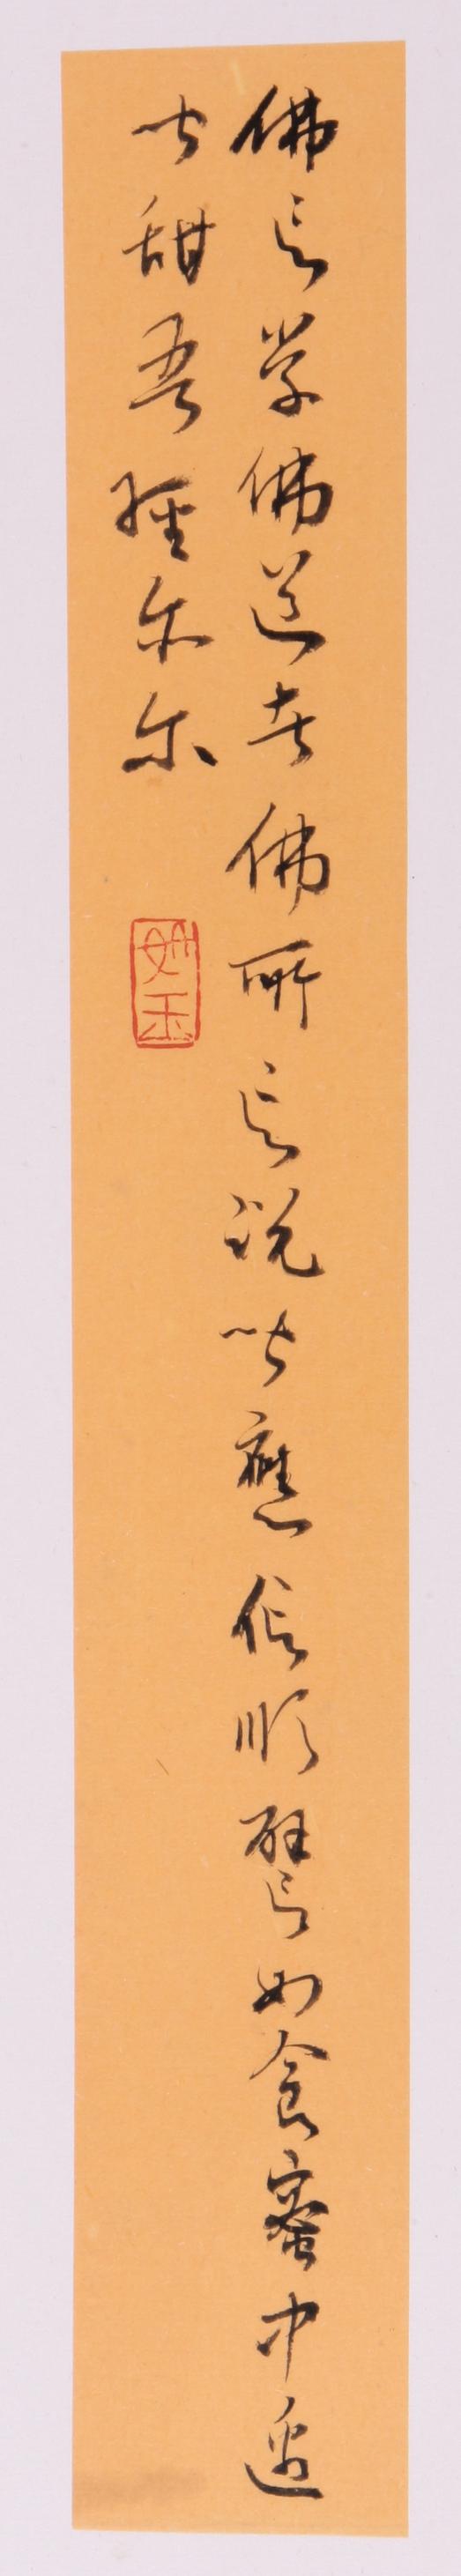 佛言学佛道者佛所言説皆應信順譬如食蜜中邊
皆甜吾經亦尔
妙玉